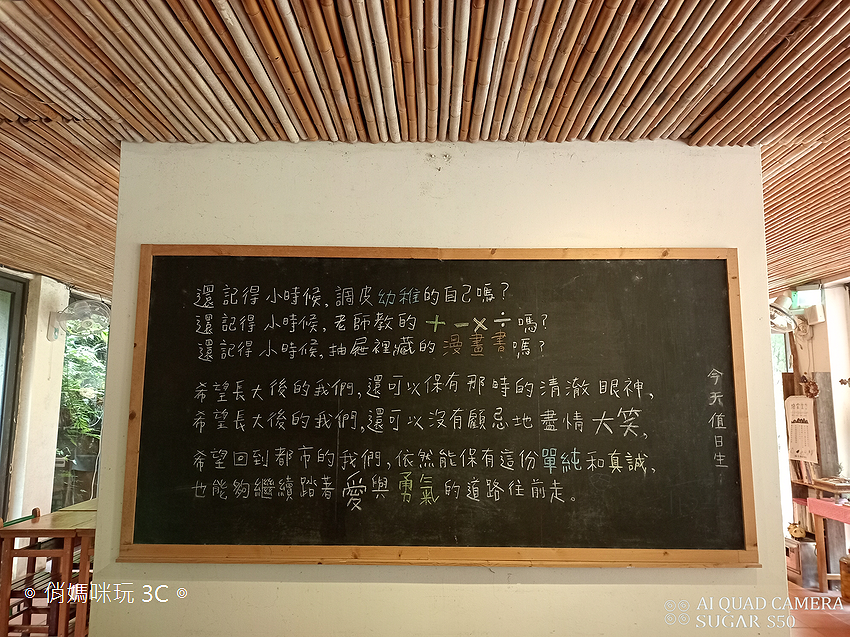 還記得小時候,調皮幼稚的自己嗎?
還記得小時候,老師教的+-×÷嗎?
還記得小時候,抽屜裡藏的漫畫書嗎?
希望長大後的我們,還可以保有那時的清澈眼神,
希望長大後的我們,還可以沒有顧忌地盡情大笑,
希望回到都市的我們,依然能保有這份單純和真誠,
也能夠繼續踏著愛與勇氣的道路往前走。
今天值日生
俏媽咪玩 3C
AI QUAD CAMERA
SUGAR S50